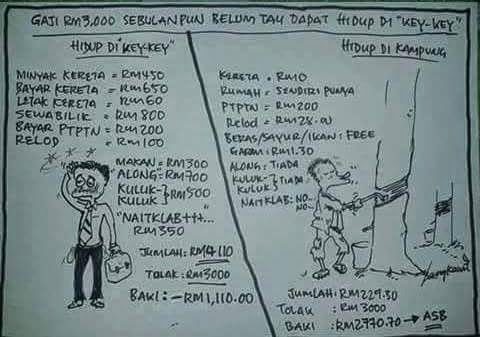 GAJI RM3,000 SEBULAN PUN BELUM TAU DAPAT HIDUP DI "KEY-KEY"
HIDUP DI "KEY-KEY"
MINYAK KERETA = RM450
BAYAR KERETA = RM650
LETAK KERETA = RM60
SEWA BILIK = RM800
BAYAR PTPTN = RM200
RELOD = RM100
MAKAN = RM300
ALONG = RM700
KULUK-KULUK } RM500
"NAITKLAB+++...
RM350
JUMLAH: RM4110
TOLAK: RM3000
BAKI: -RM1,110.00
HIDUP DI KAMPUNG
KERETA = RM0
RUMAH = SENDIRI PUNYA
PTPTN = RM200
RELOD = RM28.00
BERAS/SAYUR/IKAN: FREE
GARAM: RM1.30
ALONG: TIADA
KULUK-KULUK } TIADA
NAITKLAB: NO...
NO...
JUMLAH: RM229.30
TOLAK : RM3000
BAKI : RM2770.70 → ASB